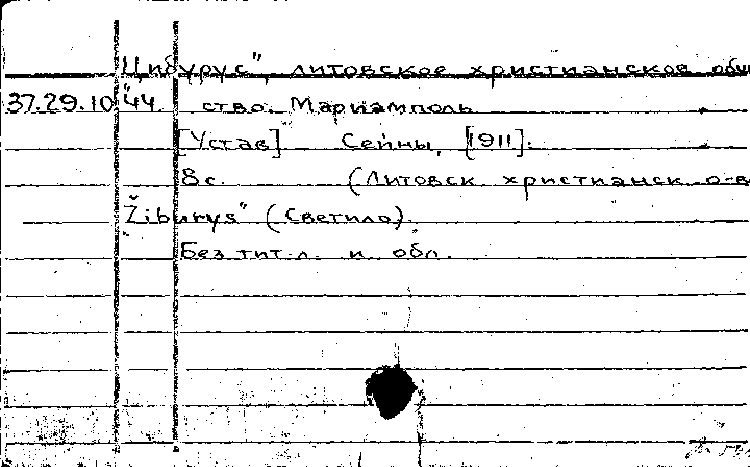 Цибурус", литовское христианское обще
37.29.10.44 ство. Мариамполь
[Устав] Сейны, [1911].
8с. (Литовск. христианск. о-в
"Žiburys" (Светило).
Без тит. л. и обл.